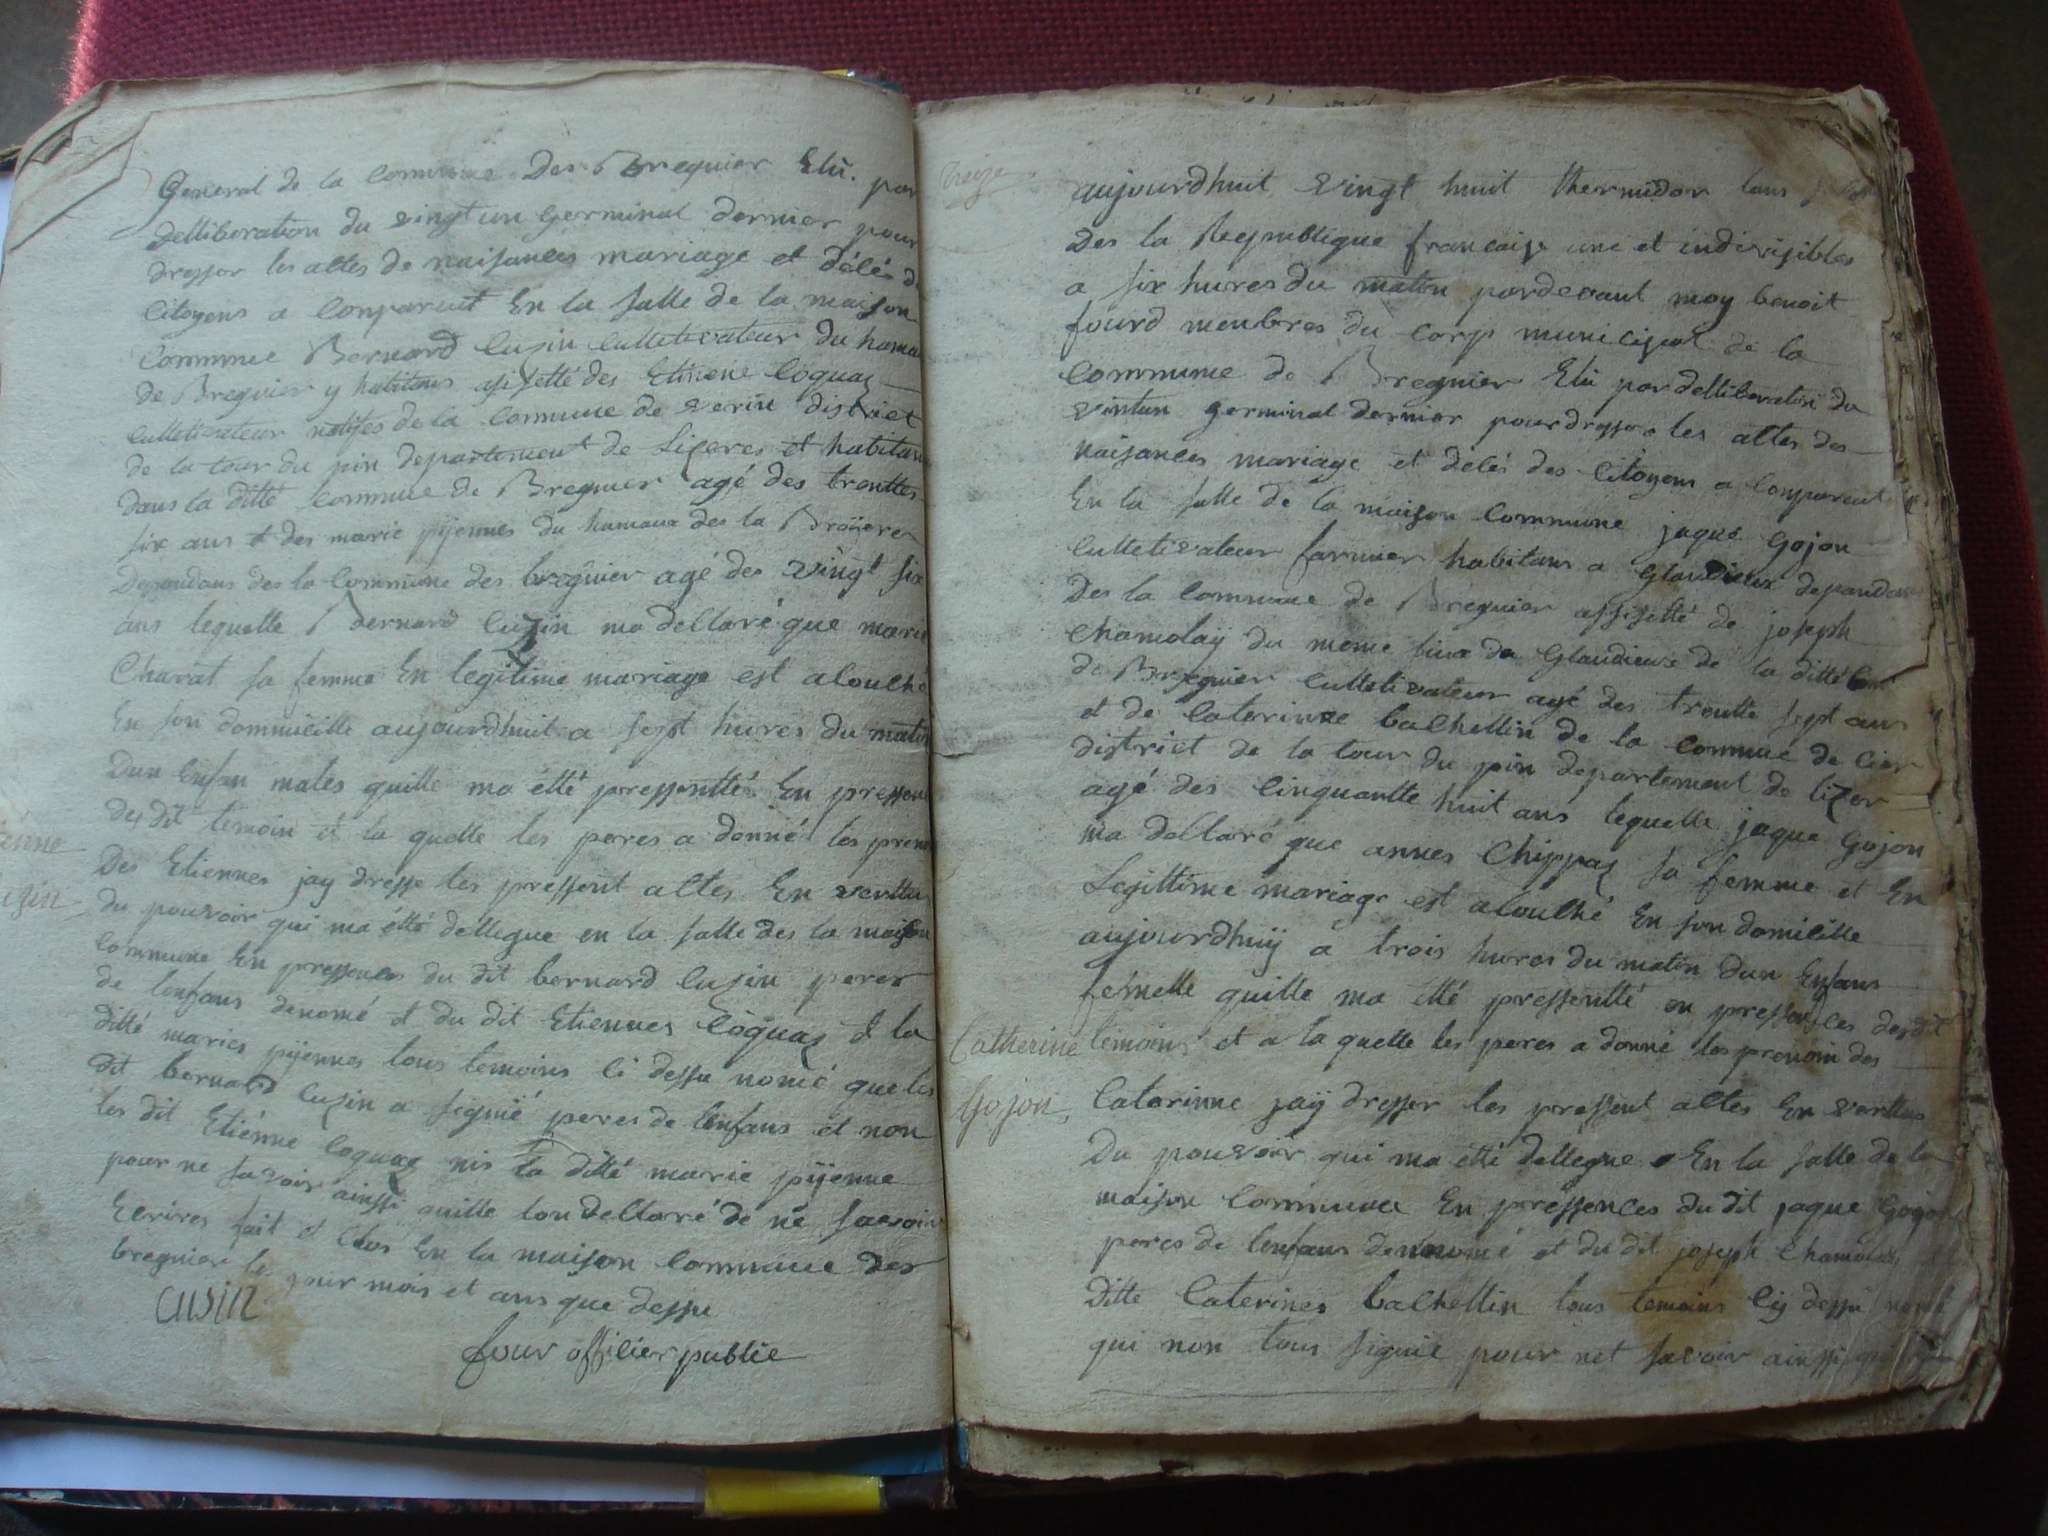 General de la commune Des Bregnier Elü. par
delliberation du vingt un Germinal dernier pour
dresser les altes de naisances mariage et délés d
Citoyens a Conpareut En la salle de la maison
Commune Bernard Cusin Culletivateur du hamau
de Bregnier y habitans assisetté des Etienne Coquaz
Culletivateur natifes de la Commune de verin district
de la tour du pin departement de Lizeres et habitan
dans la ditte Commune de Bregnier agé des trentte
six ans et des marie pijennes du hamaux des la Broïere
Dependans des la Commune des bregnier agé des vingt six
ans lequelle Bernard Cuzin ma dellaré que marie
Charat sa femme En legitime mariage est alouché
En son dommicille aujourdhuit a sept hures du matin
Dun Enfan males quille ma étté pressentté En pressen
des dit temoin et la quelle les peres a donné les preno
Des Etiennes jay dresse les pressent altes En verttu
du pouvoir qui ma étté dellegue en la salle des la maison
Commune En pressences du dit bernard Cusin peres
de lenfans denomé et du dit Etiennes Coquaz et la
ditté maries pijennes tous temoins Ci dessu nomé que les
dit bernard Cuzin a signié peres de lenfans et non
les dit Etiénne Coquaz nis la ditté marie pijenne
pour ne savoir ainssi quille lon dellaré de ne savoir
Ecrires fait et Clos En la maison Commune des
bregnier les jour mois et ans que dessu
Cusin
four offilier publie
ienne
usin
treize
aujourdhuit vingt huit thermidor lans
Des la Republique francaise une et indivisibles
a six hures du matin pardevant moy benoit
fourd menbres du Corp municipal de la
Commune de Bregnier Elü par delliberation du
vintun germinal dernier pour dresser les altes des
naisances mariage et délés des Citoyens a Conpareut
En la salle de la maison Commune jaque Gojon
Culletivateur farmier habitans a Glaudieux dependans
Des la Commune de Bregnier assisetté de joseph
Chamolaÿ du meme lieux de Glaudieux de la ditté Com
de Bregnier Culletivateur agé des trentte sept ans
et de Caterinne bachellin de la Commue de Cier
district de la tour du pin departement de lizer
agé des Cinquantte huit ans lequelle jaque Gojon
ma dellaré que annes Chippaz sa femme et En
Legittime mariage est alouché En son domicille
aujourdhuÿ a trois hures du matin dun Enfans
fémelle quille ma étté pressentté en pressences des dit
Catherine temoins et a la quelle les peres a donné les prenoin des
Gojon Catarinne jaÿ dresser les pressent altes En verttus
Du pouvoir qui ma étté dellegue En la salle de la
maison Commune En pressences du dit jaque Gojon
peres de lenfans denomé et du dit joseph Chamolaÿ
ditte Caterines bachellin tous temoins Cÿ dessu nomé
qui non tous signié pour net savoir ainssi qui